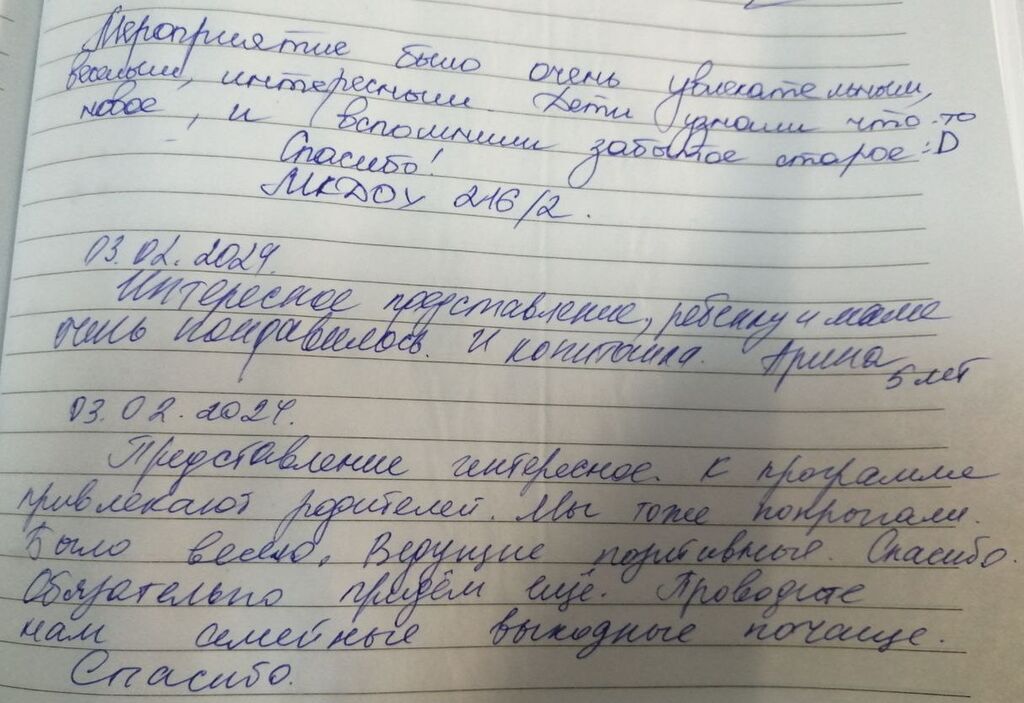 Мероприятие было очень увлекательным,
веселым, интересным. Дети узнали что-то
новое, и вспомнили забытое старое :D
Спасибо!
МКДОУ 216/2.
03.02.2024.
Интересное представление, ребенку и маме
очень понравилось. И капитошка. Арина
5 лет
03.02.2024.
Представление интересное. К программе
привлекают родителей. Мы тоже попрыгали.
Было весело. Ведущие позитивные. Спасибо.
Обязательно придём ещё. Проводите
нам семейные выходные почаще.
Спасибо.